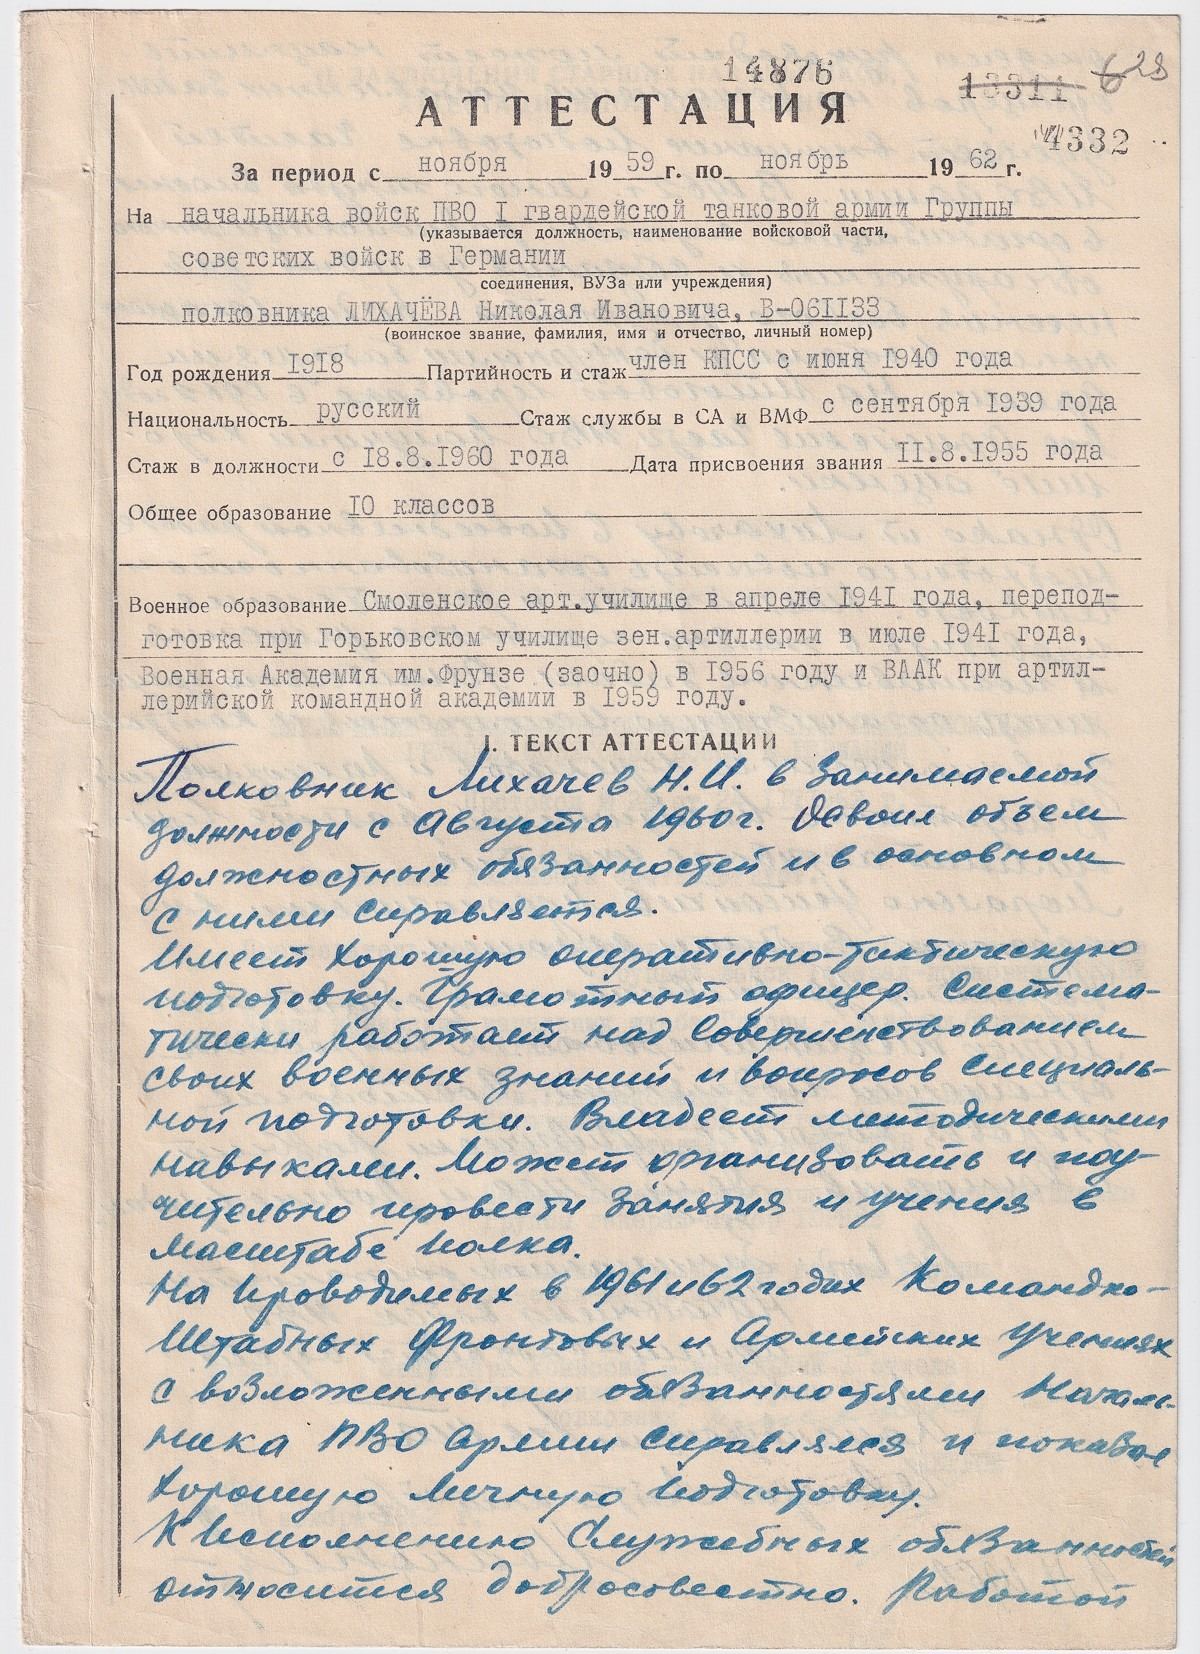 14876
13311 628
4332
АТТЕСТАЦИЯ
За период с ноября 1959 г. по ноябрь 1962 г.
На начальника войск ПВО I гвардейской танковой армии Группы
(указывается должность, наименование войсковой части,
советских войск в Германии
соединения, ВУЗа или учреждения)
полковника ЛИХАЧЁВА Николая Ивановича, В-061133
(воинское звание, фамилия, имя и отчество, личный номер)
Год рождения 1918 Партийность и стаж член КПСС с июня 1940 года
Национальность русский Стаж службы в СА и ВМФ с сентября 1939 года
Стаж в должности с 18.8.1960 года Дата присвоения звания 11.8.1955 года
Общее образование 10 классов
Военное образование Смоленское арт.училище в апреле 1941 года, перепод-
готовка при Горьковском училище зен.артиллерии в июле 1941 года,
Военная Академия им.Фрунзе (заочно) в 1956 году и ВААК при артил-
лерийской командной академии в 1959 году.
I. ТЕКСТ АТТЕСТАЦИИ
Полковник Лихачев Н.И. в занимаемой
должности с Августа 1960г. Освоил объем
должностных обязанностей и в основном
с ними справляется.
Имеет хорошую оперативно-тактическую
подготовку. Грамотный офицер. Система-
тически работает над совершенствованием
своих военных знаний и вопросов специаль-
ной подготовки. Владеет методическими
навыками. Может организовать и поу-
чительно провести занятия и учения в
масштабе полка.
На проводимых в 1961 и 62 годах Командно-
Штабных Фронтовых и Армейских учениях
с возложенными обязанностями Началь-
ника ПВО Армии справлялся и показал
хорошую личную подготовку.
К исполнению служебных обязанностей
относится добросовестно. Работой